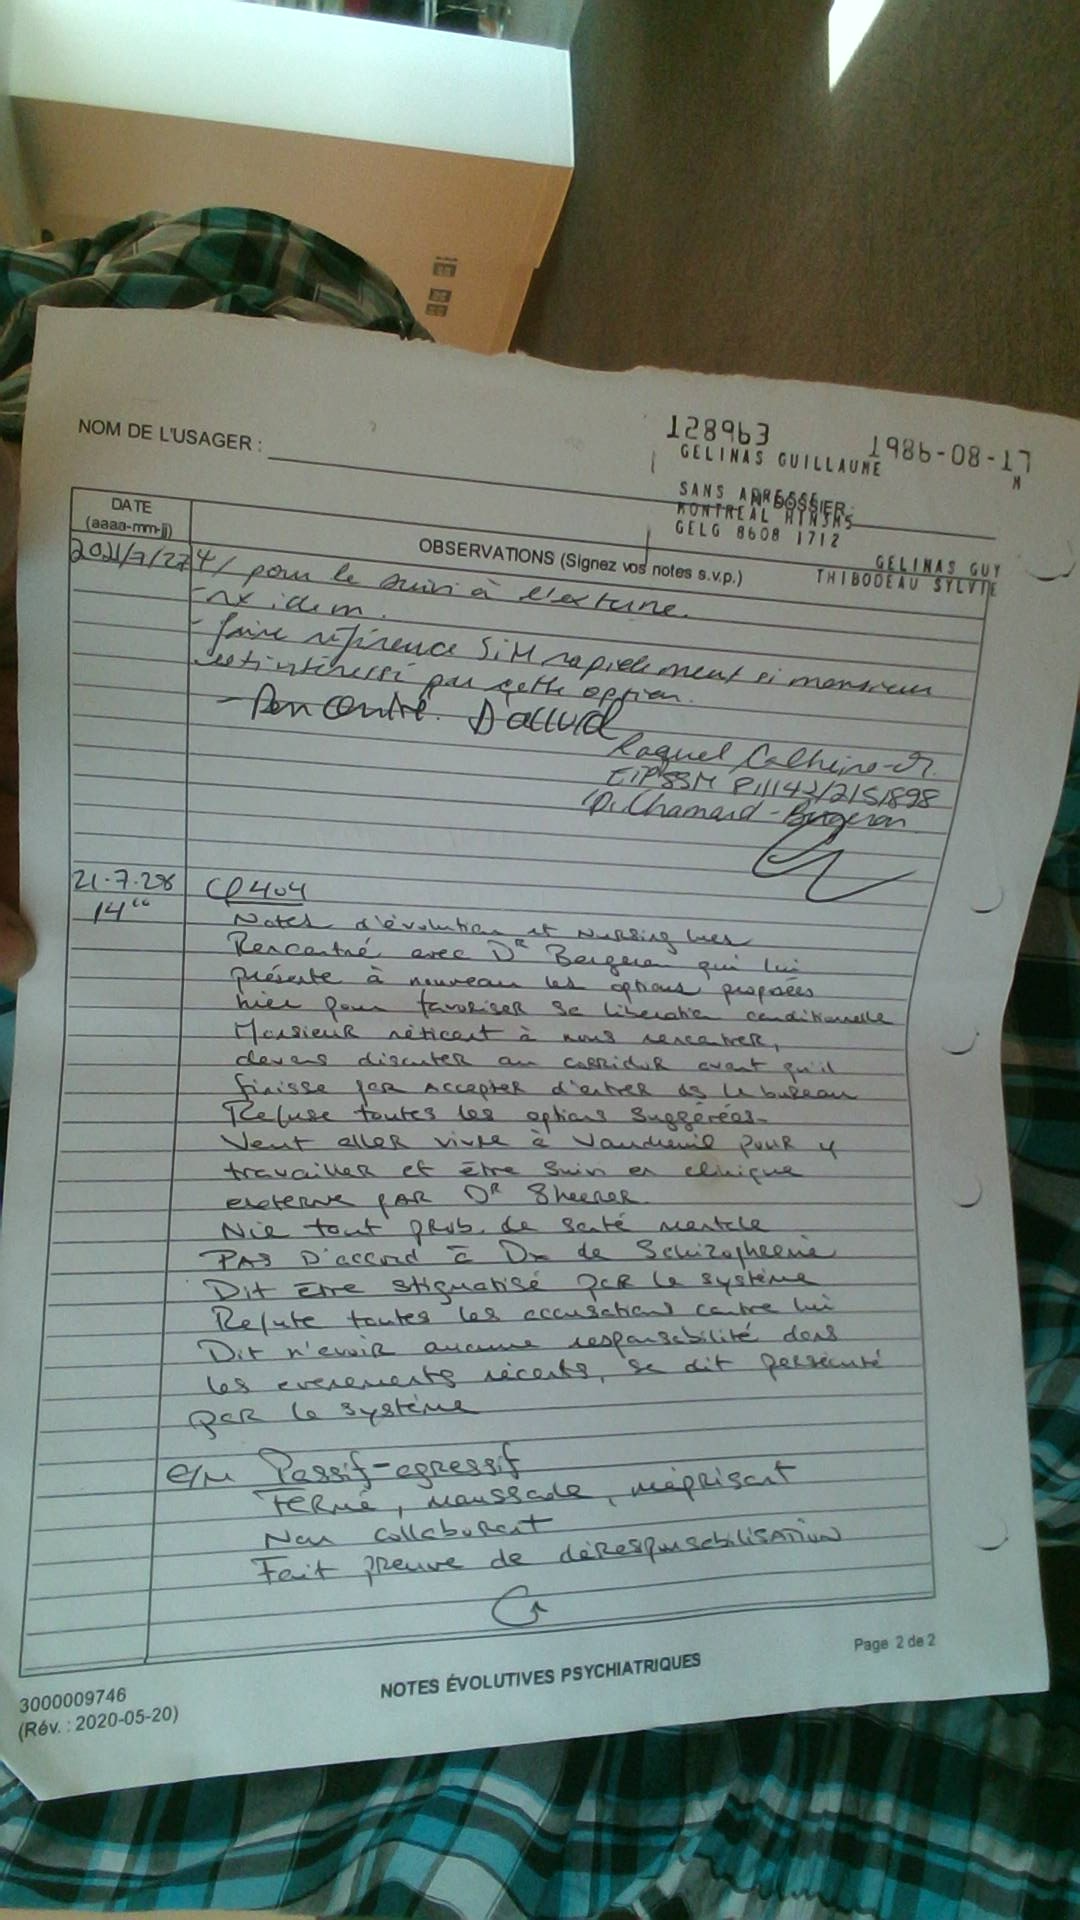 NOM DE L'USAGER :
128963 1986-08-17
GELINAS GUILLAUME M
SANS ADRESSE
N DOSSIER:
MONTREAL
GELG 8608 1712
GELINAS GUY
THIBODEAU SYLVIE
DATE
(aaaa-mm-jj)
OBSERVATIONS (Signez vos notes s.v.p.)
2021/7/27 4/ pour le suivi à l'externe.
- rx idem.
- faire référence SIM rapidement si monsieur
est intéressé par cette option.
- Rencontré. D'accord
Raquel
EIPSSM P11142/2151898
Chamard-Bergeron
21.7.28 CP404
14⁰⁰
Notes d'évolution et nursing lues
Rencontré avec Dr Bergeron qui lui
présente à nouveau les options proposées
hier pour favoriser sa libération conditionnelle
Monsieur réticent à nous rencontrer,
devons discuter au corridor avant qu'il
finisse par accepter d'entrer ds le bureau
Refuse toutes les options suggérées.
Veut aller vivre à Vaudreuil pour y
travailler et être suivi en clinique
externe par Dr Sheerer.
Nie tout prob. de santé mentale
Pas d'accord à Dx de Schizophrénie
Dit être stigmatisé par le système
Refute toutes les accusations contre lui
Dit n'avoir aucune responsabilité dans
les evenements récents, se dit persécuté
par le système
e/m Passif-agressif
Fermé, maussade, méprisant
Non collaborant
Fait preuve de déresponsabilisation
Page 2 de 2
NOTES ÉVOLUTIVES PSYCHIATRIQUES
3000009746
(Rév. : 2020-05-20)